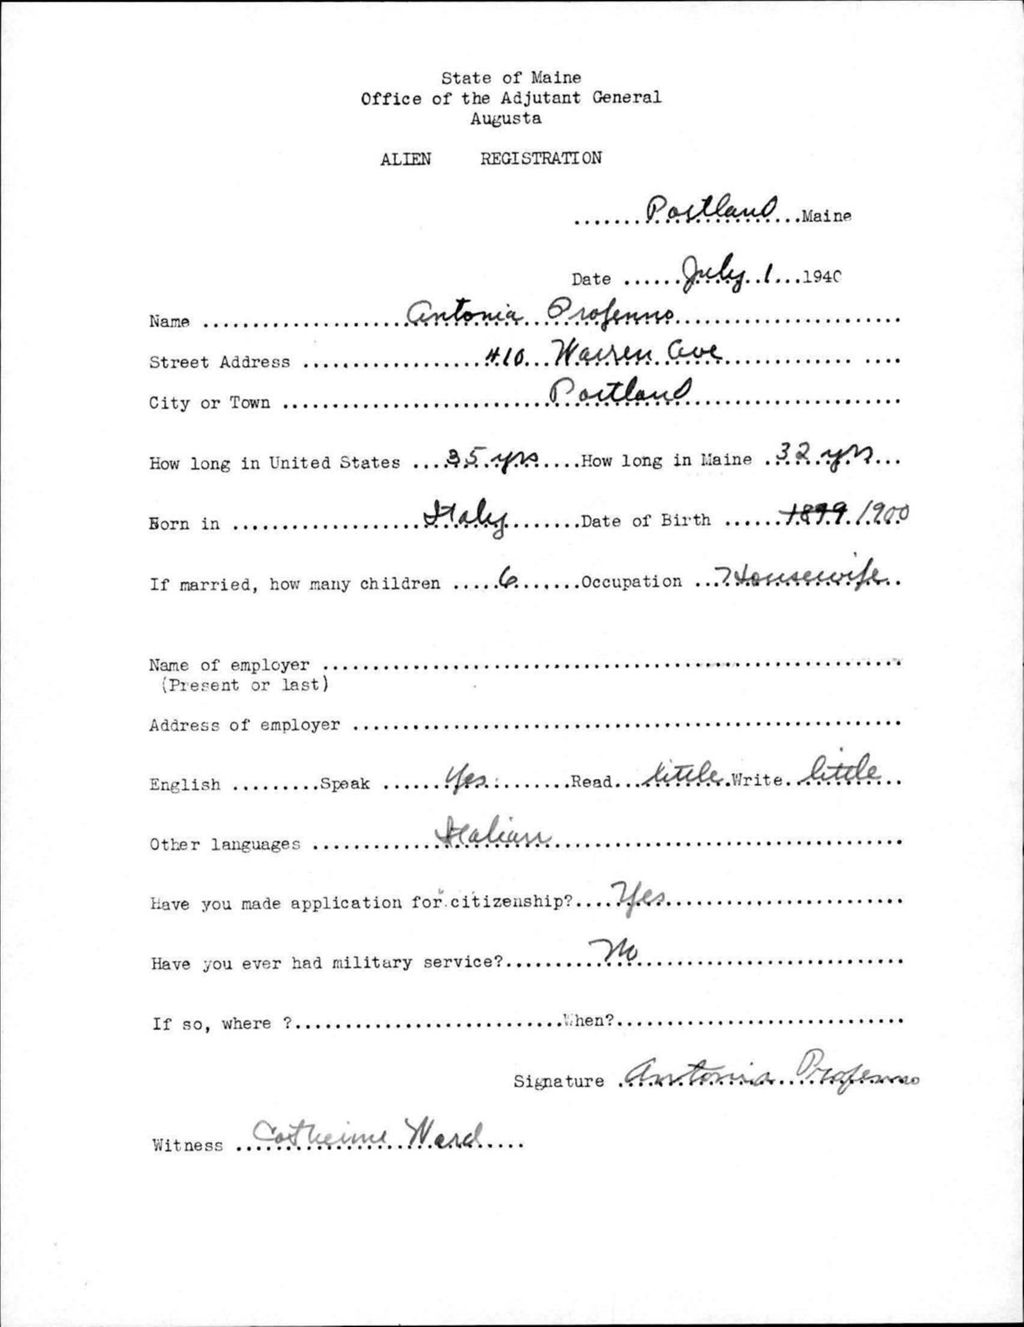 State of Maine
Office of the Adjutant General
Augusta
ALIEN REGISTRATION
.......Portland...Maine
Date ......July 1...1940
Name .....................Antonia Profenno.......................
Street Address ..................410 Warren Ave............... ....
City or Town ...........................Portland.....................
How long in United States ....35 yrs.....How long in Maine .32 yrs...
Born in ...................Italy........Date of Birth ......1899 1900
If married, how many children .....6.......Occupation ...Housewife..
Name of employer ..........................................................
(Present or last)
Address of employer .......................................................
English .........Speak ......Yes........Read...little.Write..little..
Other languages .............Italian...................................
Have you made application for citizenship?....Yes........................
Have you ever had military service?..........No...........................
If so, where ?...........................When?.............................
Signature .Antonia Profenno
Witness ..Catherine Ward....